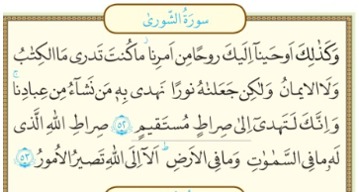 سورة الشوری
وَكَذٰلِكَ اَوحَينآ اِلَيكَ روحًا مِن اَمرِنا ۚ ما كُنتَ تَدری مَا الكِتٰبُ
وَلَا الايمانُ وَلٰكِن جَعَلنٰهُ نورًا نَهدی بِهٖ مَن نَشآءُ مِن عِبادِنا ۚ
وَاِنَّكَ لَتَهدیٓ اِلىٰ صِراطٍ مُستَقيمٍ ﴿٥٢﴾ صِراطِ اللهِ الَّذی
لَهٗ ما فِی السَّمٰوٰتِ وَما فِی الاَرضِ ۗ اَلآ اِلَی اللهِ تَصيرُ الاُمورُ ﴿٥٣﴾